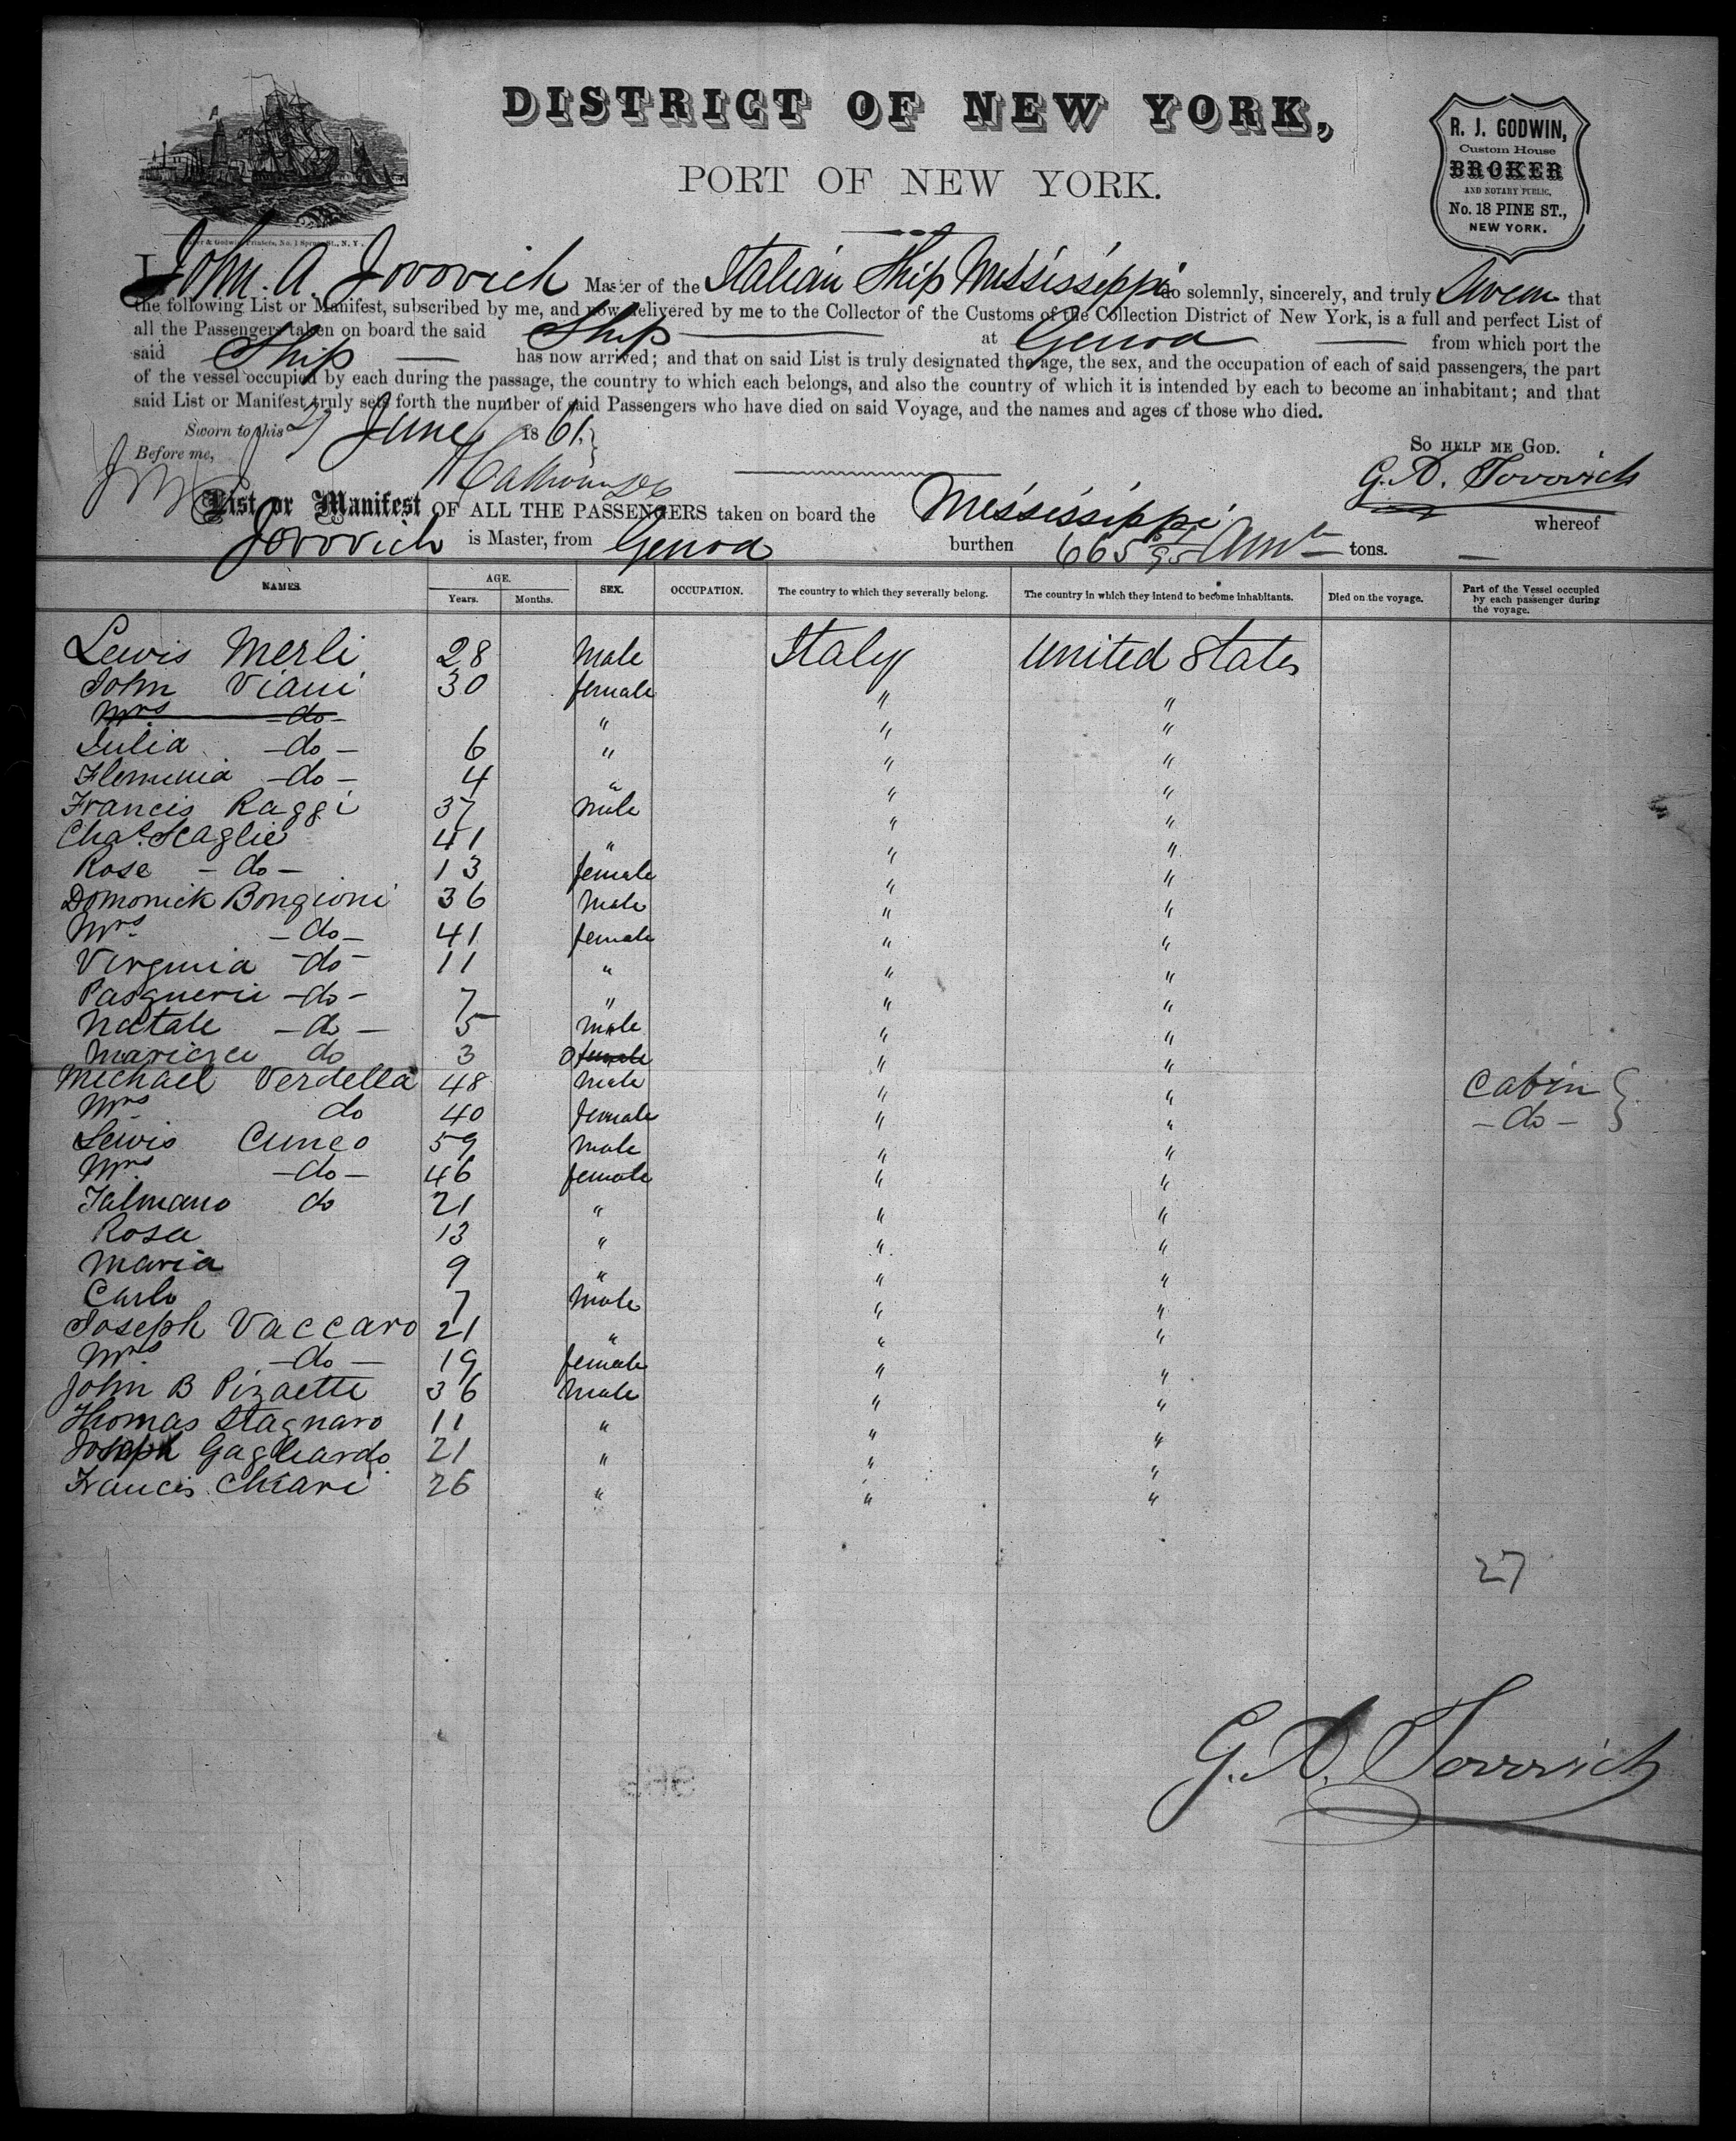 DISTRICT OF NEW YORK,
PORT OF NEW YORK.
R. J. GODWIN,
Custom House
BROKER
AND NOTARY PUBLIC,
No. 18 PINE ST.,
NEW YORK.
& Godwin, Printers, No. 1 Spruce St., N. Y.
I, John. A. Jovovich Master of the Italian Ship Mississippi do solemnly, sincerely, and truly Swear that
the following List or Manifest, subscribed by me, and now delivered by me to the Collector of the Customs of the Collection District of New York, is a full and perfect List of
all the Passengers taken on board the said Ship at Genoa from which port the
said Ship has now arrived; and that on said List is truly designated the age, the sex, and the occupation of each of said passengers, the part
of the vessel occupied by each during the passage, the country to which each belongs, and also the country of which it is intended by each to become an inhabitant; and that
said List or Manifest truly sets forth the number of said Passengers who have died on said Voyage, and the names and ages of those who died.
Sworn to this 27 June 1861.
So HELP ME GOD.
Before me,
G. A. Jovovich
List or Manifest OF ALL THE PASSENGERS taken on board the Mississippi whereof
Jovovich is Master, from Genoa burthen 665 tons.
NAMES. AGE. Years. Months. SEX. OCCUPATION. The country to which they severally belong. The country in which they intend to become inhabitants. Died on the voyage. Part of the Vessel occupied by each passenger during the voyage.
Lewis Merli 28 Male Italy United States
John Viani 30 female " "
Mrs - do - " " "
Julia - do - 6 " " "
Fleminia - do - 4 " " "
Francis Raggi 37 Male " "
Chas. Scaglie 41 " " "
Rose - do - 13 female " "
Domonick Bongioni 36 Male " "
Mrs - do - 41 female " "
Virginia - do - 11 " " "
- do - 7 " " "
Natale - do - 5 Male " "
do 3 female " "
Michael Verdella 48 Male " " Cabin
Mrs do 40 female " " - do -
Lewis Cuneo 59 Male " "
Mrs - do - 46 female " "
Talmano do 21 " " "
Rosa 13 " " "
Maria 9 " " "
Carlo 7 Male " "
Joseph Vaccaro 21 " " "
Mrs - do - 19 female " "
John B Pizaette 36 Male " "
Thomas Stagnaro 11 " " "
Joseph Gagliardo 21 " " "
Francis Chiari 26 " " "
27
G. A. Jovovich